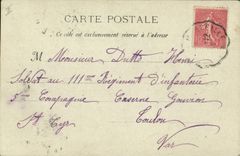 CARTE POSTALE
Ce côté est exclusivement réservé à l'adresse
M Monsieur Dutto Henri
Soldat au 111me Régiment d'infanterie
5me Compagnie Caserne Gouvion
St Cyr Toulon
Var